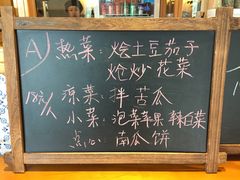 A) 热菜：烩土豆茄子
炝炒花菜
18元/人 凉菜：拌苦瓜
小菜：泡菜苹果 辣白菜
点心：南瓜饼